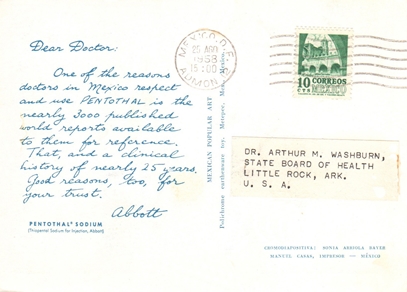 Dear Doctor:
One of the reasons
doctors in Mexico respect
and use PENTOTHAL is the
nearly 3000 published
world reports available
to them for reference.
That, and a clinical
history of nearly 25 years.
Good reasons, too, for
your trust.
Abbott
PENTOTHAL SODIUM
(Thiopental Sodium for Injection, Abbott)
MEXICAN POPULAR ART
Polichrome earthenware toy. Metepec, Mex. Mexico
MEXICO, D.F.
25 AGO
1958
15:00
10 CORREOS
MEXICO
DR. ARTHUR M. WASHBURN,
STATE BOARD OF HEALTH
LITTLE ROCK, ARK.
U. S. A.
MANUEL CASAS, IMPRESOR — MÉXICO